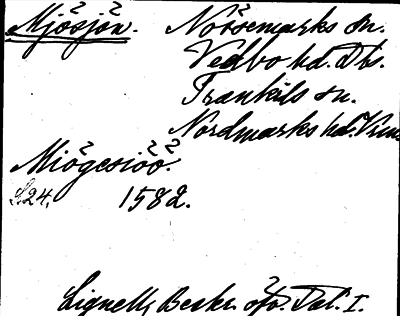 Mjösjön. Nössemarks sn.
Vedbo hd. Dls.
Trankils sn.
Nordmarks hd. Vrml
Miögesiöö.
S. 24. 1582.
Lignell, Beskr. öfv. Dal. I.